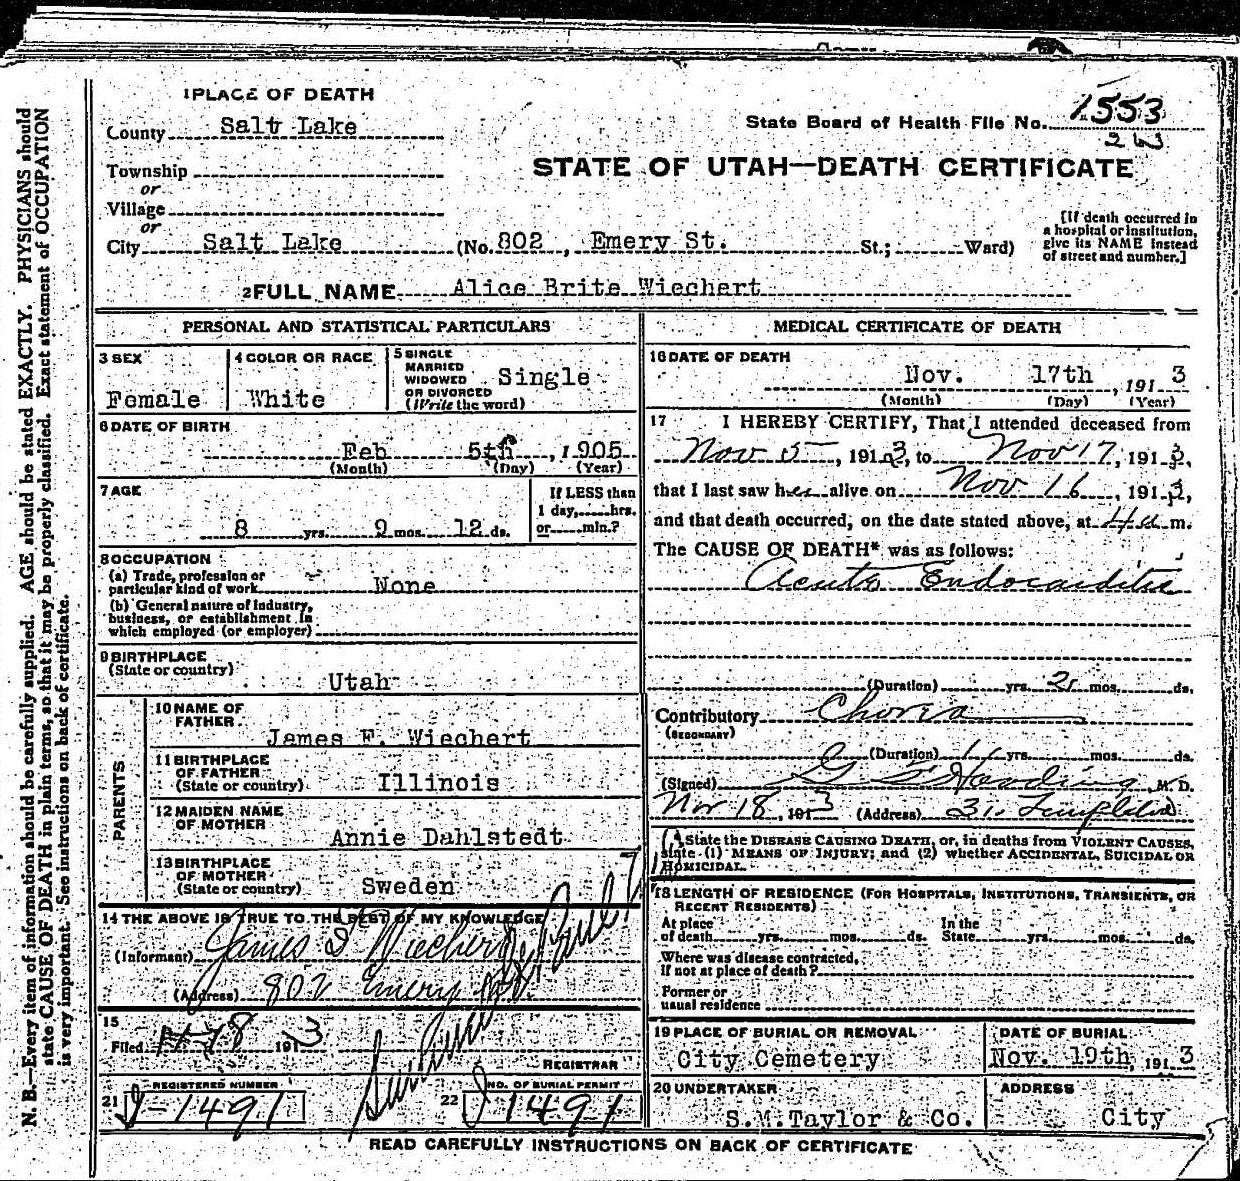 1 PLACE OF DEATH
County Salt Lake
State Board of Health File No. 1553
2 W
Township
or
Village
or
City Salt Lake (No. 802, Emery St. St.; Ward)
STATE OF UTAH—DEATH CERTIFICATE
[If death occurred in
a hospital or institution,
give its NAME instead
of street and number.]
2 FULL NAME Alice Brite Wiechert
PERSONAL AND STATISTICAL PARTICULARS
3 SEX
Female
4 COLOR OR RACE
White
5 SINGLE
MARRIED
WIDOWED
OR DIVORCED
(Write the word)
Single
6 DATE OF BIRTH
Feb 5th, 1905
(Month) (Day) (Year)
7 AGE
8 yrs. 9 mos. 12 ds.
If LESS than
1 day, hrs.
or min.?
8 OCCUPATION
(a) Trade, profession or
particular kind of work None
(b) General nature of Industry,
business, or establishment in
which employed (or employer)
9 BIRTHPLACE
(State or country)
Utah
PARENTS
10 NAME OF
FATHER
James F. Wiechert
11 BIRTHPLACE
OF FATHER
(State or country) Illinois
12 MAIDEN NAME
OF MOTHER
Annie Dahlstedt
13 BIRTHPLACE
OF MOTHER
(State or country) Sweden
14 THE ABOVE IS TRUE TO THE BEST OF MY KNOWLEDGE
(Informant) James F Wiechert
(Address) 802 Emery
15
Filed 11-18 1913
REGISTRAR
REGISTERED NUMBER
21 J-1491
NO. OF BURIAL PERMIT
22 J 1491
MEDICAL CERTIFICATE OF DEATH
16 DATE OF DEATH
Nov. 17th, 1913
(Month) (Day) (Year)
17 I HEREBY CERTIFY, That I attended deceased from
Nov 5, 1913, to Nov 17, 1913,
that I last saw her alive on Nov 16, 1913,
and that death occurred, on the date stated above, at 4 a m.
The CAUSE OF DEATH* was as follows:
Acute Endocarditis
(Duration) yrs. 2 mos. ds.
Contributory Chorea
(SECONDARY)
(Duration) yrs. mos. ds.
(Signed) G F Harding, M. D.
Nov 18, 1913 (Address) Templeton
* State the DISEASE CAUSING DEATH, or, in deaths from VIOLENT CAUSES,
state (1) MEANS OF INJURY; and (2) whether ACCIDENTAL, SUICIDAL OR
HOMICIDAL.
18 LENGTH OF RESIDENCE (FOR HOSPITALS, INSTITUTIONS, TRANSIENTS, OR
RECENT RESIDENTS)
At place
of death yrs. mos. ds.
In the
State yrs. mos. ds.
Where was disease contracted,
if not at place of death?
Former or
usual residence
19 PLACE OF BURIAL OR REMOVAL
City Cemetery
DATE OF BURIAL
Nov. 19th, 1913
20 UNDERTAKER
S.M. Taylor & Co.
ADDRESS
City
READ CAREFULLY INSTRUCTIONS ON BACK OF CERTIFICATE
N. B.—Every item of information should be carefully supplied. AGE should be stated EXACTLY. PHYSICIANS should
state CAUSE OF DEATH in plain terms, so that it may be properly classified. Exact statement of OCCUPATION
is very important. See instructions on back of certificate.